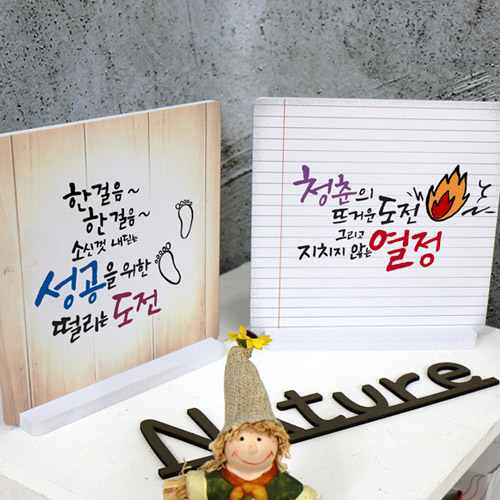 한걸음~
한걸음~
소신껏 내딛는
성공을 위한
떨리는 도전
청춘의
뜨거운 도전
그리고
지치지 않는 열정
Nature